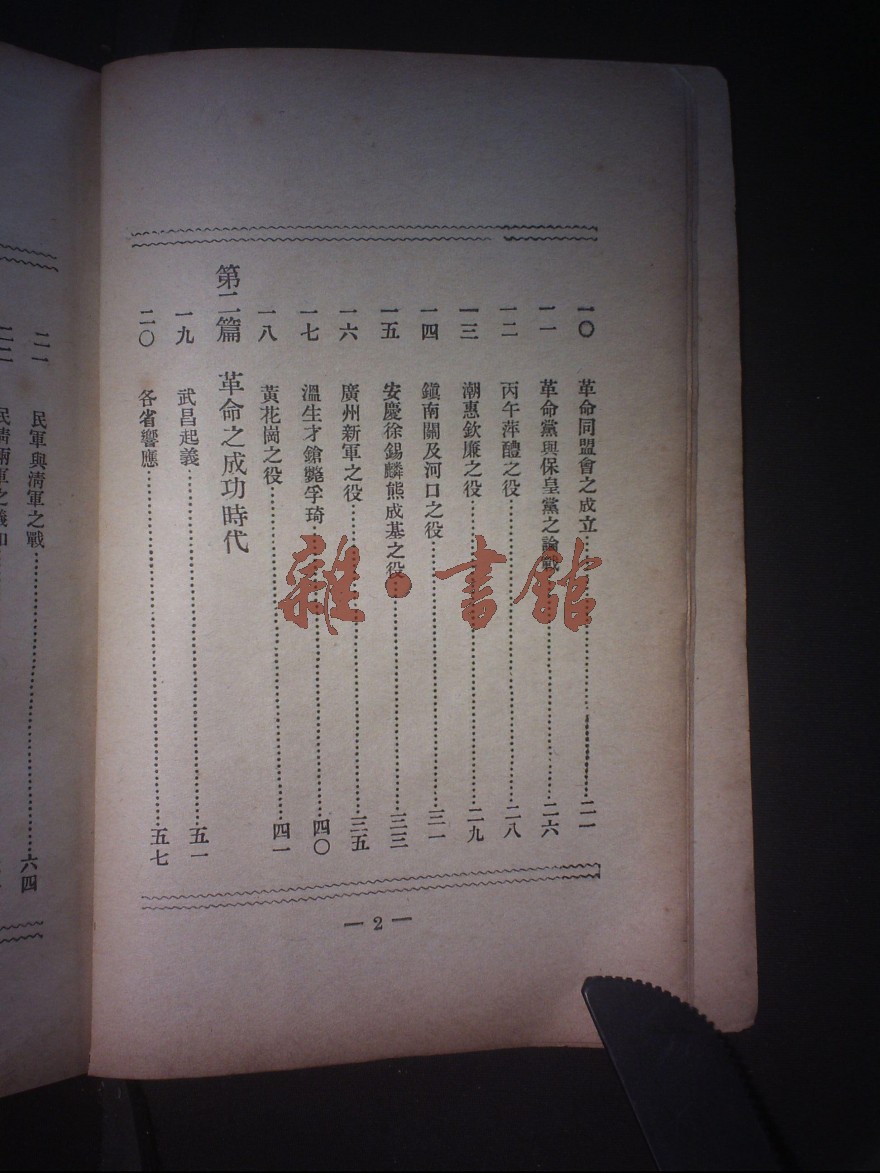 一〇 革命同盟會之成立……二一
一一 革命黨與保皇黨之論戰……二六
一二 丙午萍醴之役……二八
一三 潮惠欽廉之役……二九
一四 鎭南關及河口之役……三一
一五 安慶徐錫麟熊成基之役……三三
一六 廣州新軍之役……三五
一七 溫生才鎗斃孚琦……四〇
一八 黃花崗之役……四一
第二篇 革命之成功時代
一九 武昌起義……五一
二〇 各省響應……五七
— 2 —
二一 民軍與清軍之戰……六四
二二 民清兩軍之議和
雜·書館